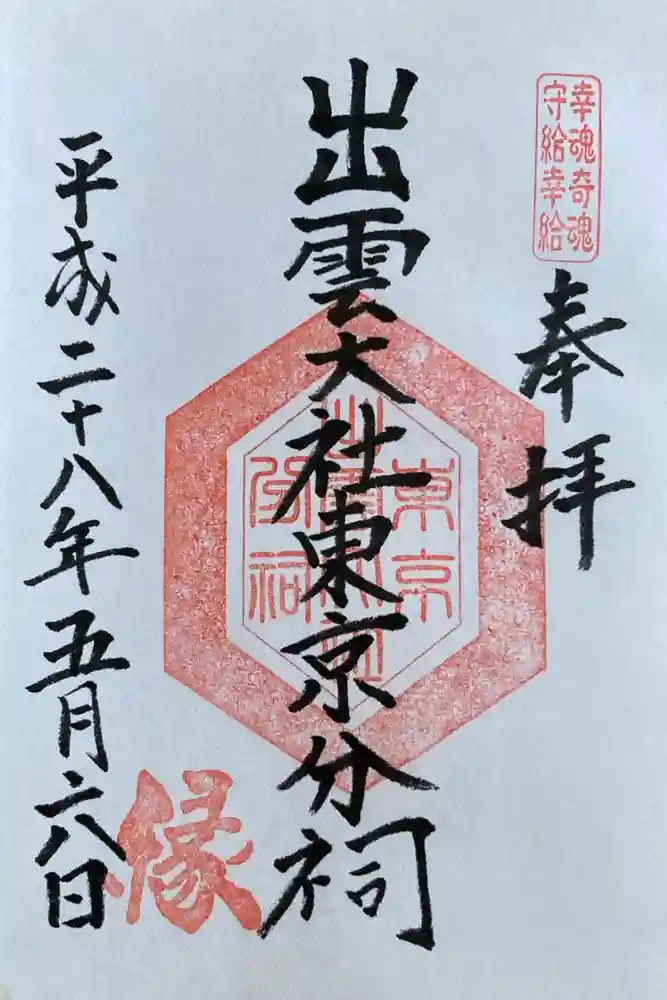 幸魂奇魂
守給幸給
奉拝
出雲大社東京分祠
東京
出雲大社
分祠
平成二十八年五月六日
縁